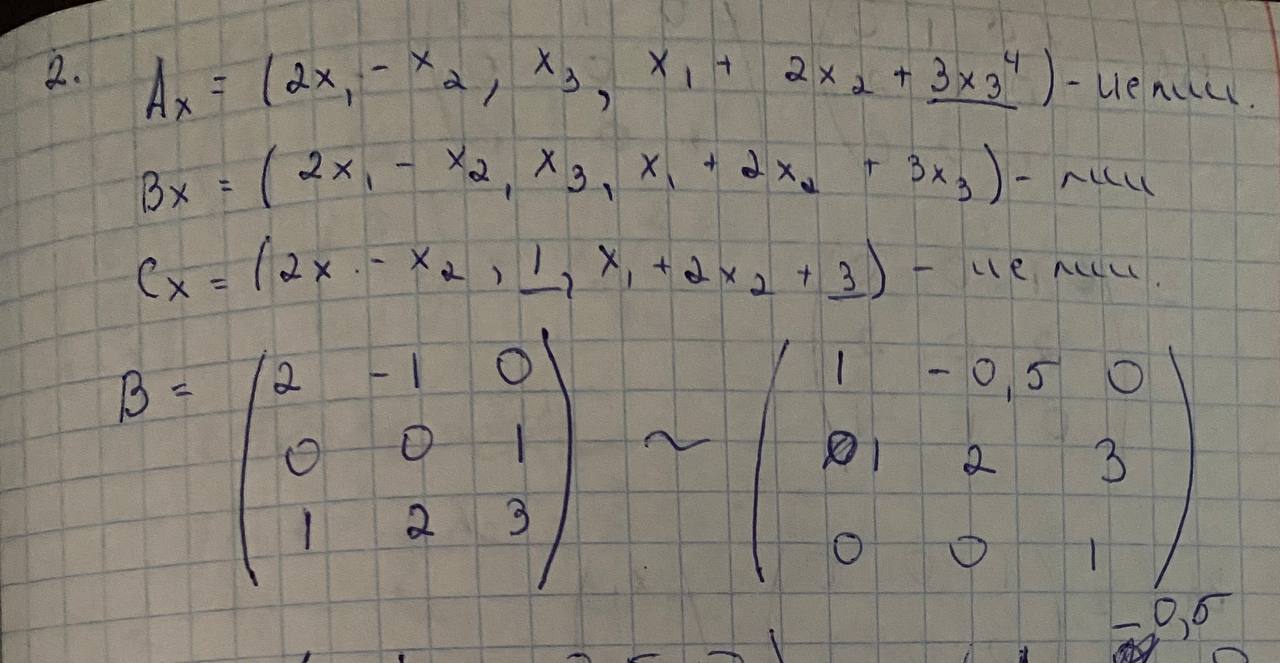 2. Ax = (2x₁ - x₂, x₃, x₁ + 2x₂ + 3x₃⁴) - нелин.
Bx = (2x₁ - x₂, x₃, x₁ + 2x₂ + 3x₃) - лин
Cx = (2x - x₂, 1, x₁ + 2x₂ + 3) - не лин.
B = (2 -1 0) ~ (1 -0,5 0)
(0 0 1) (1 2 3)
(1 2 3) (0 0 1)
-0,5